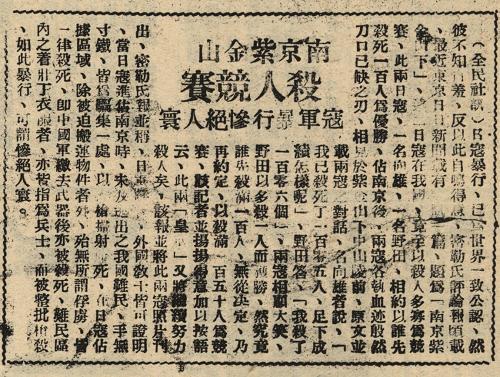 南京紫金山
殺人競賽
寇軍暴行慘絕人寰
（全民社訊）日寇暴行，已為世界一致公認，然
彼不知自羞，反以此自鳴得意，密勒氏評論報頃載
，最近東京日日新聞載有一篇，題為「南京紫
金山下」，述二日寇在我國，以殺人多寡為競
賽，此兩日寇，一名向雄，一名野田，相約以誰先
殺死一百人為優勝，佔南京後，兩寇各執血迹殷然
刀口已缺之刃，相見於紫金山下中山陵前，原文並
載兩寇對話，名向雄者說，「
我已殺死了一百零五人，足下成
績怎樣呢」，野田答，「我殺了
一百零六個」，兩寇相顧大笑，
野田以多殺一人而獲勝，然究竟
誰先殺滿一百人，無從決定，乃
再約定，以殺滿一百五十人為競
賽，該記者並揚揚得意加以按語
云，此兩「皇軍」又將繼續努力
殺人矣，該報並將此兩寇照片刊
出，密勒氏報並稱，外國教士皆可證明
，當日寇進佔南京時，未及逃出之我國難民，手無
寸鐵，皆為驅集一處，以機槍掃射而死，在日寇佔
據區域，除被迫搬運物件者外，殆無所謂俘虜，皆
一律殺死，即中國軍繳去武器後亦被殺死，難民區
內之著壯丁衣服者，亦皆指為兵士，而被整批槍殺
，如此暴行，可謂慘絕人寰。